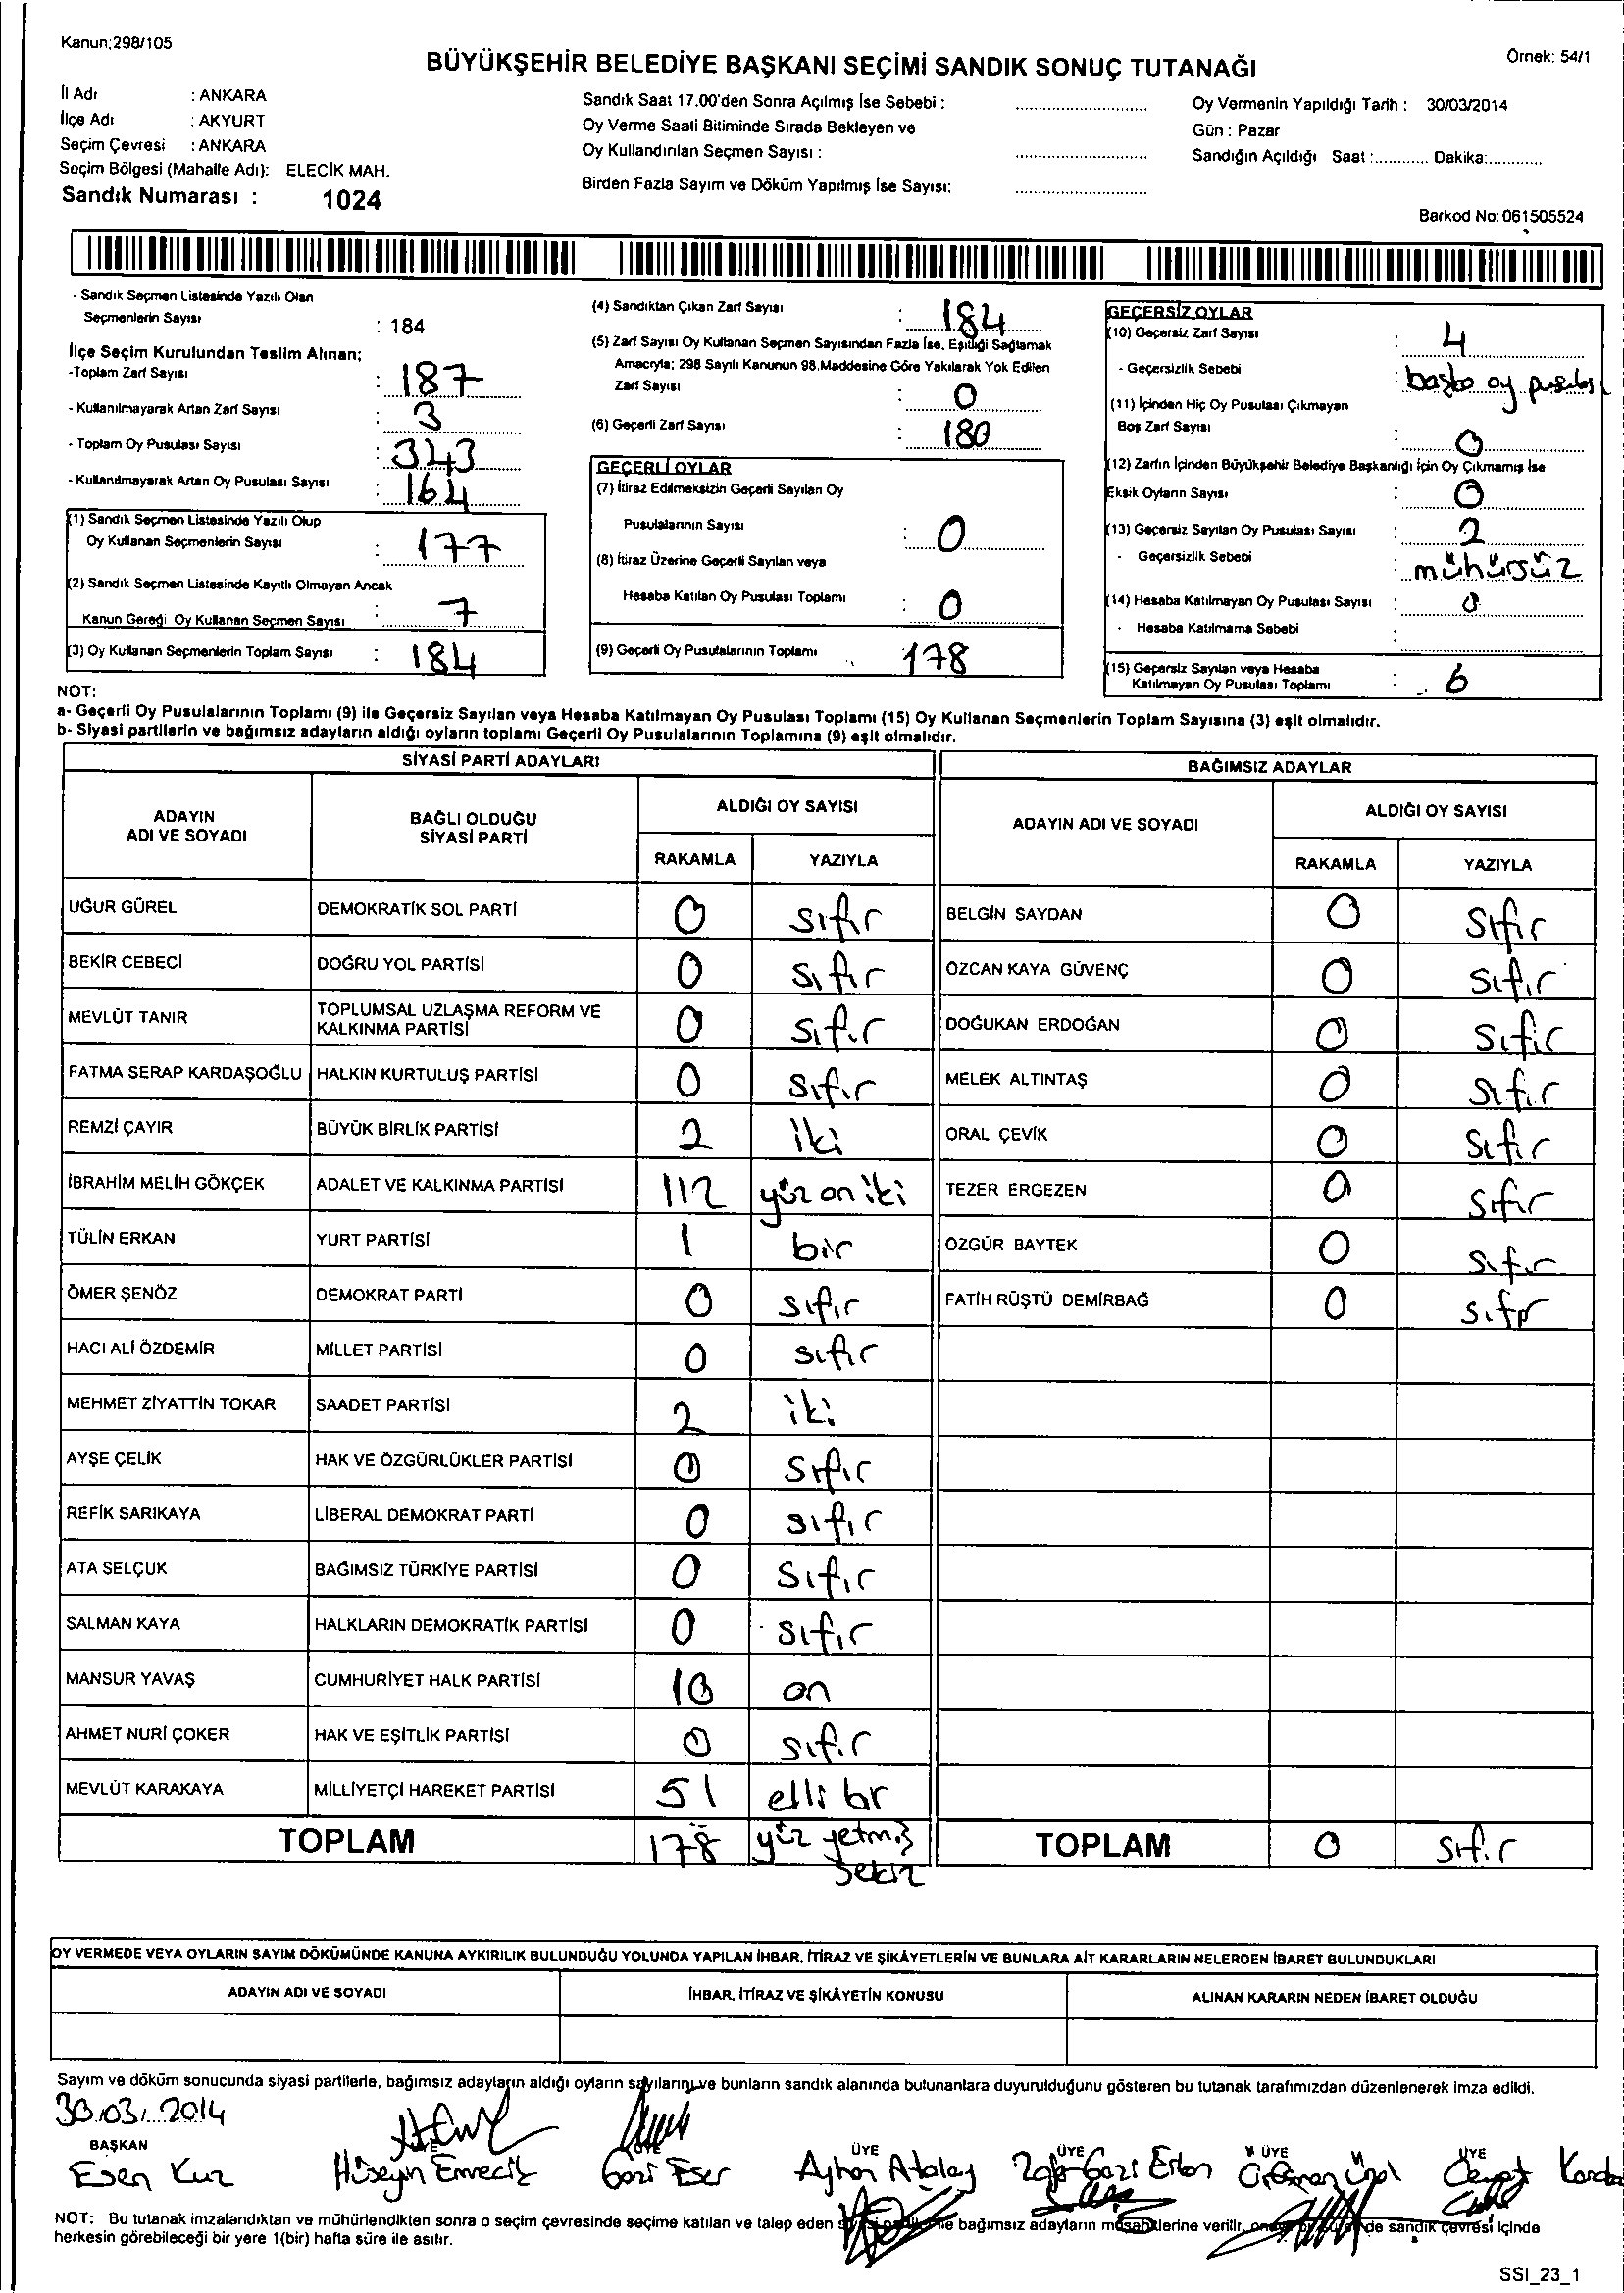 Kanun;298/105
BÜYÜKŞEHİR BELEDİYE BAŞKANI SEÇİMİ SANDIK SONUÇ TUTANAĞI
Örnek: 54/1
İl Adı : ANKARA
İlçe Adı : AKYURT
Seçim Çevresi : ANKARA
Seçim Bölgesi (Mahalle Adı): ELECİK MAH.
Sandık Numarası : 1024
Sandık Saat 17.00'den Sonra Açılmış İse Sebebi :
Oy Verme Saati Bitiminde Sırada Bekleyen ve
Oy Kullandırılan Seçmen Sayısı :
Birden Fazla Sayım ve Döküm Yapılmış İse Sayısı:
Oy Vermenin Yapıldığı Tarih : 30/03/2014
Gün : Pazar
Sandığın Açıldığı Saat :............ Dakika:............
Barkod No: 061505524
- Sandık Seçmen Listesinde Yazılı Olan
Seçmenlerin Sayısı : 184
İlçe Seçim Kurulundan Teslim Alınan;
-Toplam Zarf Sayısı : 187
- Kullanılmayarak Artan Zarf Sayısı : 3
- Toplam Oy Pusulası Sayısı : 343
- Kullanılmayarak Artan Oy Pusulası Sayısı : 164
(1) Sandık Seçmen Listesinde Yazılı Olup
Oy Kullanan Seçmenlerin Sayısı : 177
(2) Sandık Seçmen Listesinde Kayıtlı Olmayan Ancak
Kanun Gereği Oy Kullanan Seçmen Sayısı : 7
(3) Oy Kullanan Seçmenlerin Toplam Sayısı : 184
(4) Sandıktan Çıkan Zarf Sayısı : 184
(5) Zarf Sayısı Oy Kullanan Seçmen Sayısından Fazla İse, Eşitliği Sağlamak
Amacıyla; 298 Sayılı Kanunun 98.Maddesine Göre Yakılarak Yok Edilen
Zarf Sayısı : 0
(6) Geçerli Zarf Sayısı : 180
GEÇERLİ OYLAR
(7) İtiraz Edilmeksizin Geçerli Sayılan Oy
Pusulalarının Sayısı : 0
(8) İtiraz Üzerine Geçerli Sayılan veya
Hesaba Katılan Oy Pusulası Toplamı : 0
(9) Geçerli Oy Pusulalarının Toplamı : 178
GEÇERSİZ OYLAR
(10) Geçersiz Zarf Sayısı : 4
- Geçersizlik Sebebi : başka oy pusulası
(11) İçinden Hiç Oy Pusulası Çıkmayan
Boş Zarf Sayısı : 0
(12) Zarfın İçinden Büyükşehir Belediye Başkanlığı İçin Oy Çıkmamış İse
Eksik Oyların Sayısı : 0
(13) Geçersiz Sayılan Oy Pusulası Sayısı : 2
- Geçersizlik Sebebi : mühürsüz
(14) Hesaba Katılmayan Oy Pusulası Sayısı : 0
- Hesaba Katılmama Sebebi :
(15) Geçersiz Sayılan veya Hesaba
Katılmayan Oy Pusulası Toplamı : 6
NOT:
a- Geçerli Oy Pusulalarının Toplamı (9) ile Geçersiz Sayılan veya Hesaba Katılmayan Oy Pusulası Toplamı (15) Oy Kullanan Seçmenlerin Toplam Sayısına (3) eşit olmalıdır.
b- Siyasi partilerin ve bağımsız adayların aldığı oyların toplamı Geçerli Oy Pusulalarının Toplamına (9) eşit olmalıdır.
SİYASİ PARTİ ADAYLARI
BAĞIMSIZ ADAYLAR
ADAYIN ADI VE SOYADI BAĞLI OLDUĞU SİYASİ PARTİ ALDIĞI OY SAYISI RAKAMLA YAZIYLA
ADAYIN ADI VE SOYADI ALDIĞI OY SAYISI RAKAMLA YAZIYLA
UĞUR GÜREL DEMOKRATİK SOL PARTİ 0 sıfır BELGİN SAYDAN 0 sıfır
BEKİR CEBECİ DOĞRU YOL PARTİSİ 0 sıfır ÖZCAN KAYA GÜVENÇ 0 sıfır
MEVLÜT TANIR TOPLUMSAL UZLAŞMA REFORM VE KALKINMA PARTİSİ 0 sıfır DOĞUKAN ERDOĞAN 0 sıfır
FATMA SERAP KARDAŞOĞLU HALKIN KURTULUŞ PARTİSİ 0 sıfır MELEK ALTINTAŞ 0 sıfır
REMZİ ÇAYIR BÜYÜK BİRLİK PARTİSİ 2 iki ORAL ÇEVİK 0 sıfır
İBRAHİM MELİH GÖKÇEK ADALET VE KALKINMA PARTİSİ 112 yüz on iki TEZER ERGEZEN 0 sıfır
TÜLİN ERKAN YURT PARTİSİ 1 bir ÖZGÜR BAYTEK 0 sıfır
ÖMER ŞENÖZ DEMOKRAT PARTİ 0 sıfır FATİH RÜŞTÜ DEMİRBAĞ 0 sıfır
HACI ALİ ÖZDEMİR MİLLET PARTİSİ 0 sıfır
MEHMET ZİYATTİN TOKAR SAADET PARTİSİ 2 iki
AYŞE ÇELİK HAK VE ÖZGÜRLÜKLER PARTİSİ 0 sıfır
REFİK SARIKAYA LİBERAL DEMOKRAT PARTİ 0 sıfır
ATA SELÇUK BAĞIMSIZ TÜRKİYE PARTİSİ 0 sıfır
SALMAN KAYA HALKLARIN DEMOKRATİK PARTİSİ 0 sıfır
MANSUR YAVAŞ CUMHURİYET HALK PARTİSİ 10 on
AHMET NURİ ÇOKER HAK VE EŞİTLİK PARTİSİ 0 sıfır
MEVLÜT KARAKAYA MİLLİYETÇİ HAREKET PARTİSİ 51 elli bir
TOPLAM 178 yüz yetmiş sekiz TOPLAM 0 sıfır
OY VERMEDE VEYA OYLARIN SAYIM DÖKÜMÜNDE KANUNA AYKIRILIK BULUNDUĞU YOLUNDA YAPILAN İHBAR, İTİRAZ VE ŞİKÂYETLERİN VE BUNLARA AİT KARARLARIN NELERDEN İBARET BULUNDUKLARI
ADAYIN ADI VE SOYADI İHBAR, İTİRAZ VE ŞİKÂYETİN KONUSU ALINAN KARARIN NEDEN İBARET OLDUĞU
Sayım ve döküm sonucunda siyasi partilerle, bağımsız adayların aldığı oyların sayılarını ve bunların sandık alanında bulunanlara duyurulduğunu gösteren bu tutanak tarafımızdan düzenlenerek imza edildi.
30/03/2014
BAŞKAN ÜYE ÜYE ÜYE ÜYE ÜYE ÜYE
Esen Kuz Hüseyin Emrecik Gazi Eser Ayhan Atalay Gazi
NOT: Bu tutanak imzalandıktan ve mühürlendikten sonra o seçim çevresinde seçime katılan ve talep eden bağımsız adayların müşahitlerine verilir, sandık çevresi içinde
herkesin görebileceği bir yere 1(bir) hafta süre ile asılır.
SSI_23_1